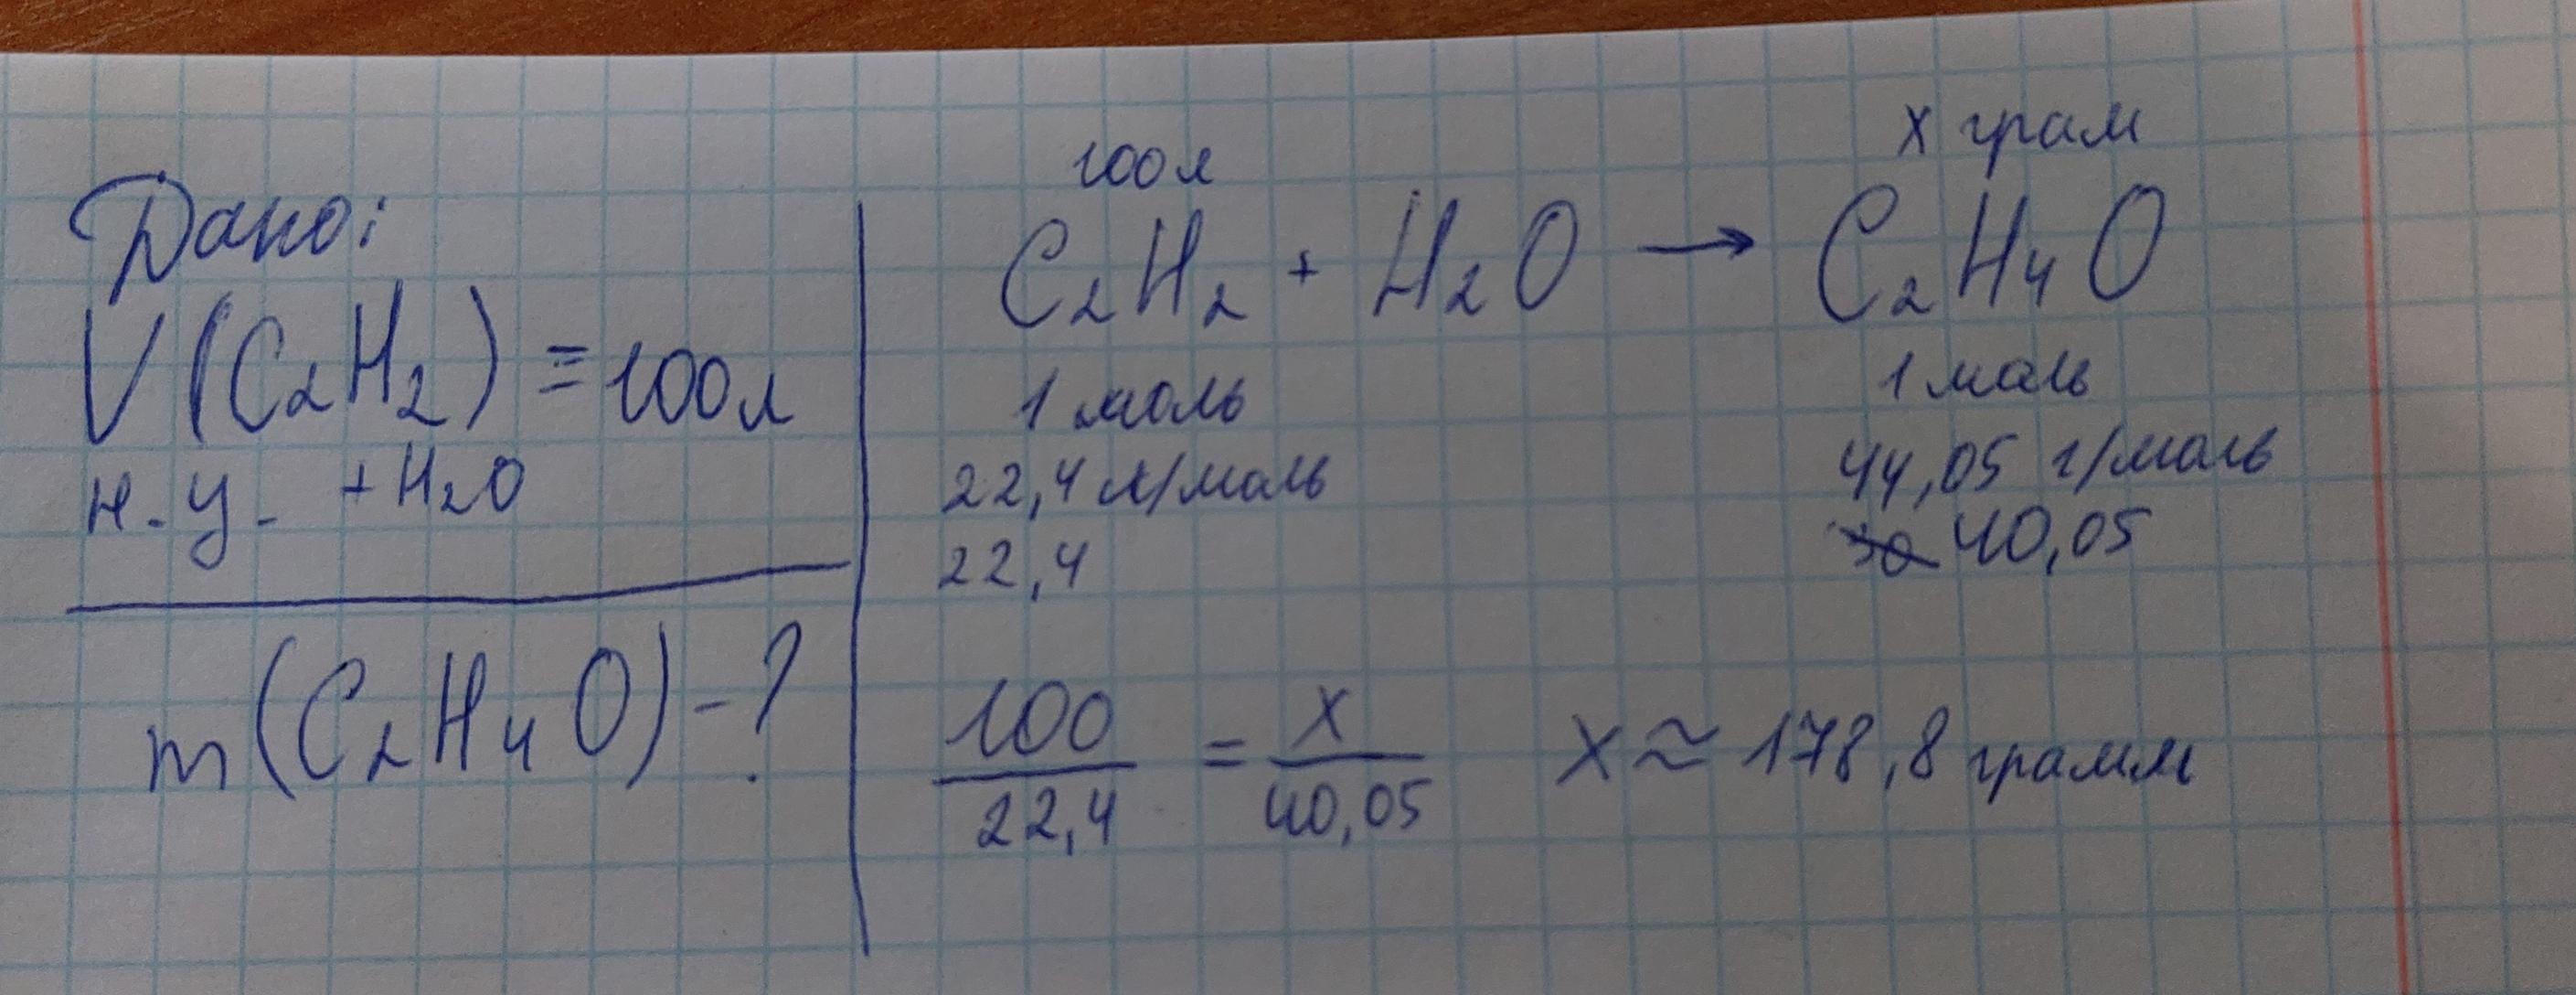 Дано:
V(C₂H₂) = 100л
н.у. + H₂O
m(C₂H₄O) - ?
100л
x грам
C₂H₂ + H₂O → C₂H₄O
1 моль
1 моль
22,4 л/моль
44,05 г/моль
22,4
40,05
100/22,4 = x/40,05 x ≈ 178,8 грамм